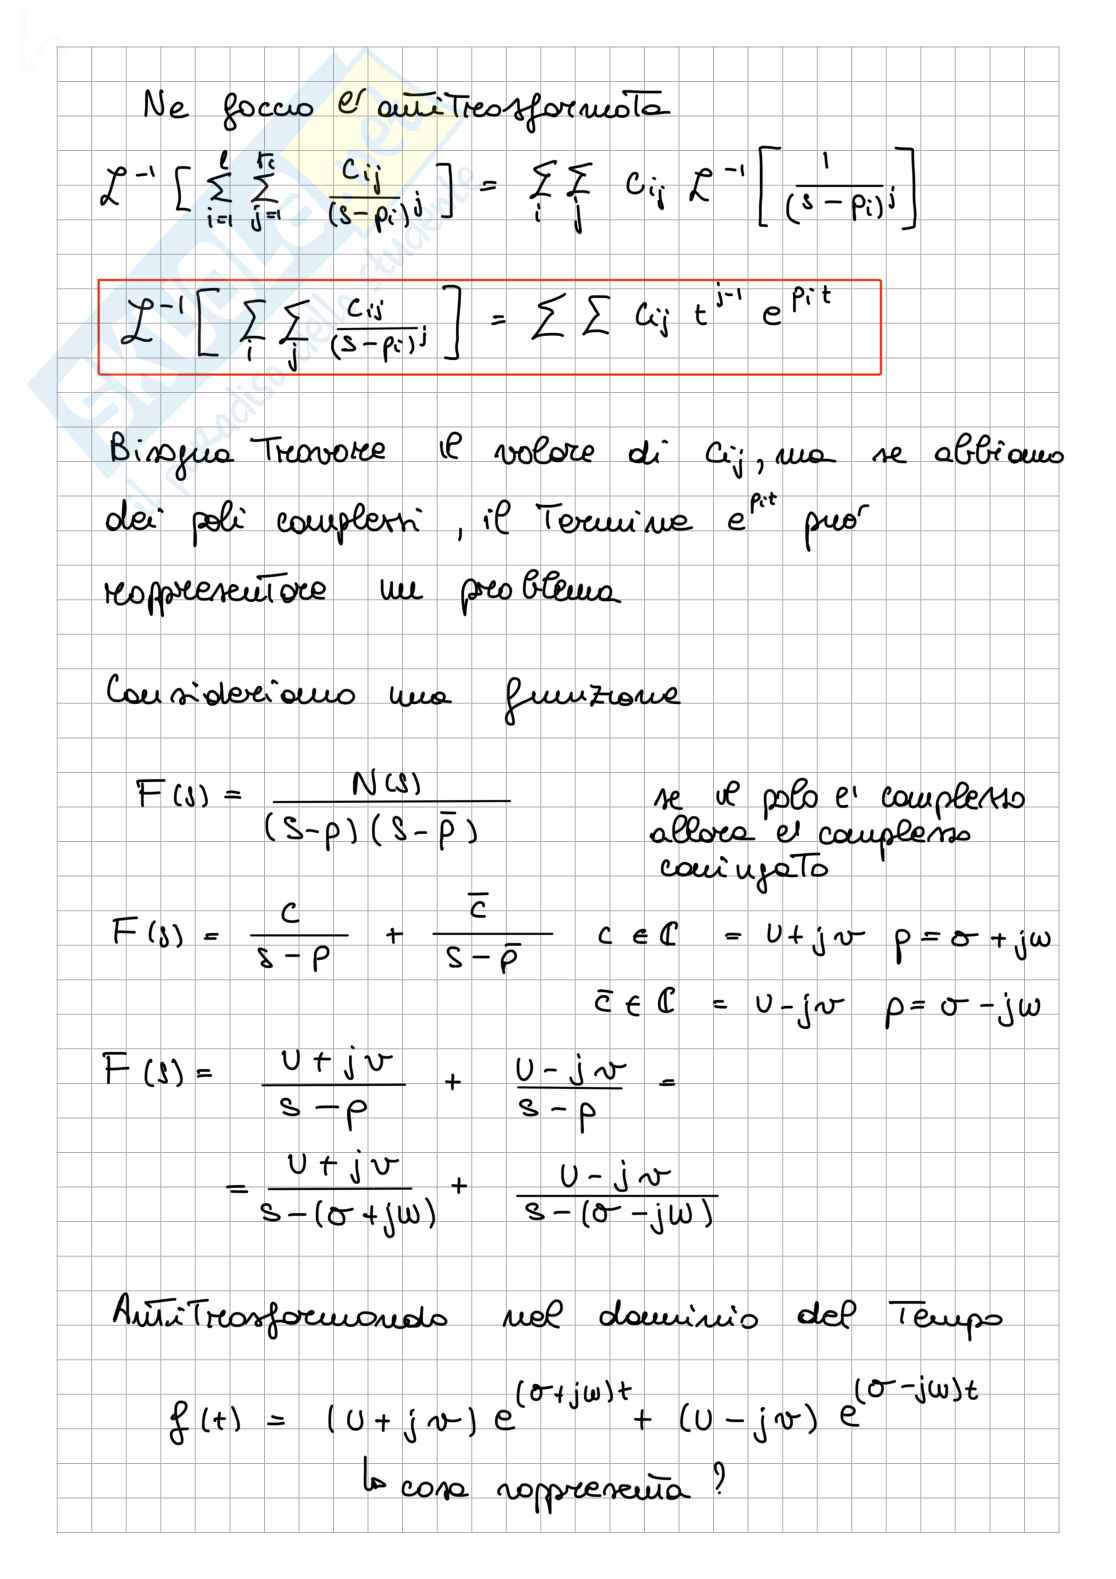 Ne faccio l'antitrasformata
ℒ⁻¹ [ ∑_{i=1}^{l} ∑_{j=1}^{r_i} c_ij / (s-p_i)^j ] = ∑_i ∑_j c_ij ℒ⁻¹ [ 1 / (s-p_i)^j ]
ℒ⁻¹ [ ∑_i ∑_j c_ij / (s-p_i)^j ] = ∑ ∑ c_ij t^{j-1} e^{p_i t}
Bisogna Trovare il valore di c_ij, ma se abbiamo
dei poli complessi, il Termine e^{p_i t} può
rappresentare un problema
Consideriamo una funzione
F(s) = N(s) / (s-p)(s-p̄) se il polo e' complesso
allora e' complesso
coniugato
F(s) = c / s-p + c̄ / s-p̄ c ∈ ℂ = u+jv p = σ+jω
c̄ ∈ ℂ = u-jv p = σ-jω
F(s) = u+jv / s-p + u-jv / s-p =
= u+jv / s-(σ+jω) + u-jv / s-(σ-jω)
AntiTrasformando nel dominio del Tempo
f(t) = (u+jv) e^{(σ+jω)t} + (u-jv) e^{(σ-jω)t}
↳ cosa rappresenta?
SKUOLA.net
il paradiso dello studente